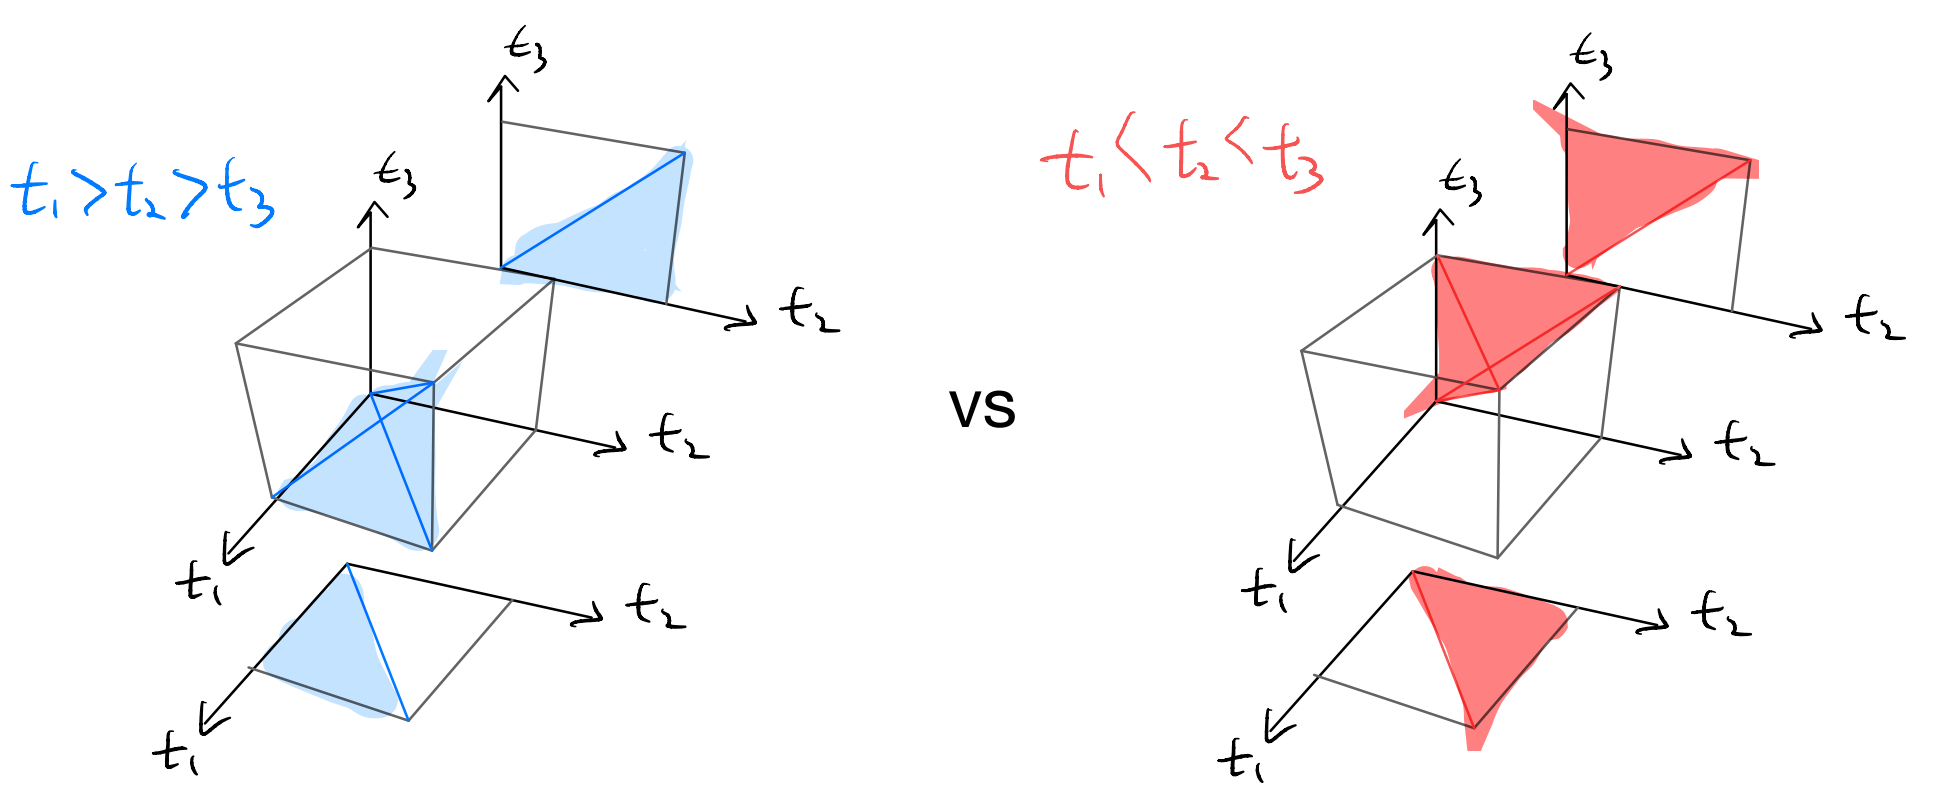 t₃
t₃
t₁>t₂>t₃
t₂
t₂
t₁
t₂
t₁
vs
t₃
t₁<t₂<t₃
t₃
t₂
t₂
t₁
t₂
t₁